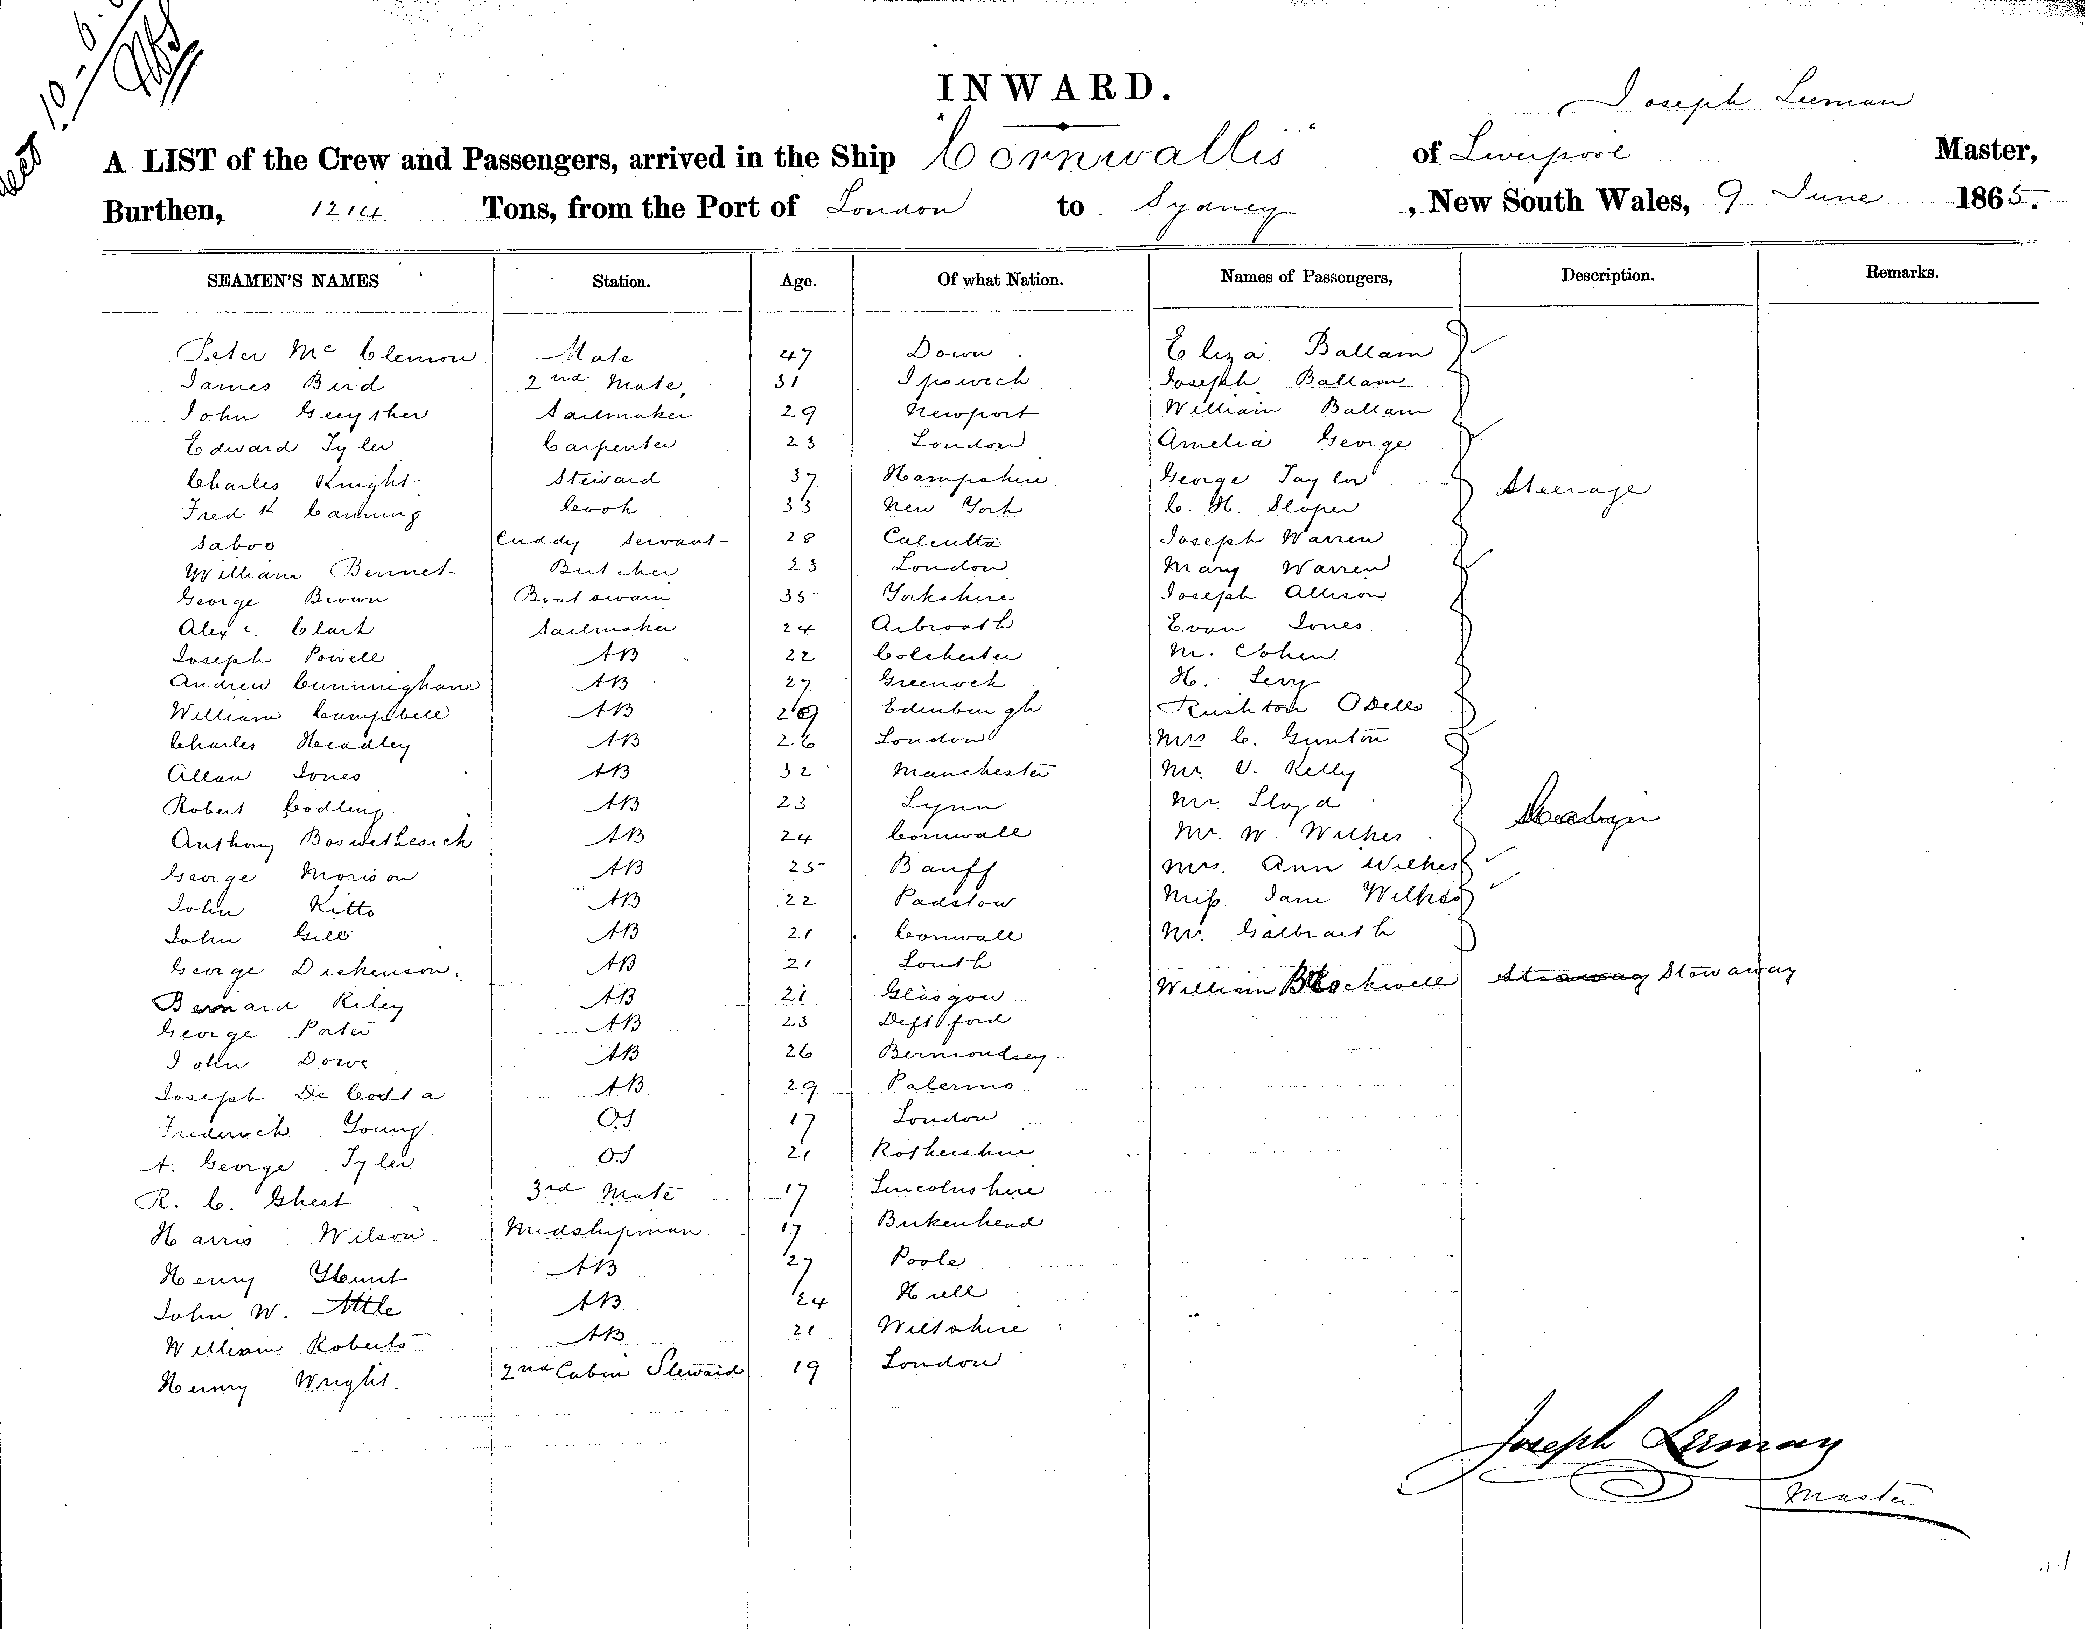 INWARD.
Joseph Leeman
A LIST of the Crew and Passengers, arrived in the Ship "Cornwallis" of Liverpool Master,
Burthen, 1214 Tons, from the Port of London to Sydney, New South Wales, 9 June 1865.
SEAMEN'S NAMES Station. Age. Of what Nation. Names of Passengers, Description. Remarks.
Peter Mc Clemon Mate 47 Down Eliza Ballam
James Bird 2nd Mate, 31 Ipswich Joseph Ballam
John Sailmaker 29 Newport William Ballam
Edward Tyler Carpenter 23 London Amelia George
Charles Knight Steward 37 Hampshire George Taylor Steerage
Fredk Canning Cook 33 New York C. H. Sloper
Saboo Cuddy Servant 28 Calcutta Joseph Warren
William Bennet Butcher 23 London Mary Warren
George Brown Boatswain 35 Yorkshire Joseph Allison
Alexr. Clark Sailmaker 24 Arbroath Evan Jones
Joseph Powell AB 22 Colchester M. Cohen
Andrew Cunningham AB 27 Greenock H. Levy
William Campbell AB 29 Edinburgh Rushton Odells
Charles Headley AB 26 London Mrs C. Gunton
Allan Jones AB 32 Manchester Mr. V. Kelly
Robert Codling AB 23 Lynn Mr. Lloyd
Anthony AB 24 Cornwall Mr. W. Wilkes
George Morison AB 25 Banff Mrs. Ann Wilkes
John Kitto AB 22 Padstow Miss. Jane Wilkes
John Gill AB 21 Cornwall Mr. Galbraith
George Dickenson. AB 21 Louth William Blockwell Stowaway
Bernard Riley AB 21 Glasgow
George Porter AB 23 Deptford
John Dowe AB 26 Bermondsey
Joseph De Costa AB 29 Palermo
Frederick Young OS 17 London
A. George Tyler OS 21
R. C. Ghest 3rd Mate 17 Lincolnshire
Harris Wilson Midshipman 17 Birkenhead
Henry Hunt AB 27 Poole
John W. Attle AB 24 Hull
William Roberts AB 21 Wiltshire
Henry Wright. 2nd Cabin Steward 19 London
Joseph Leeman
Master